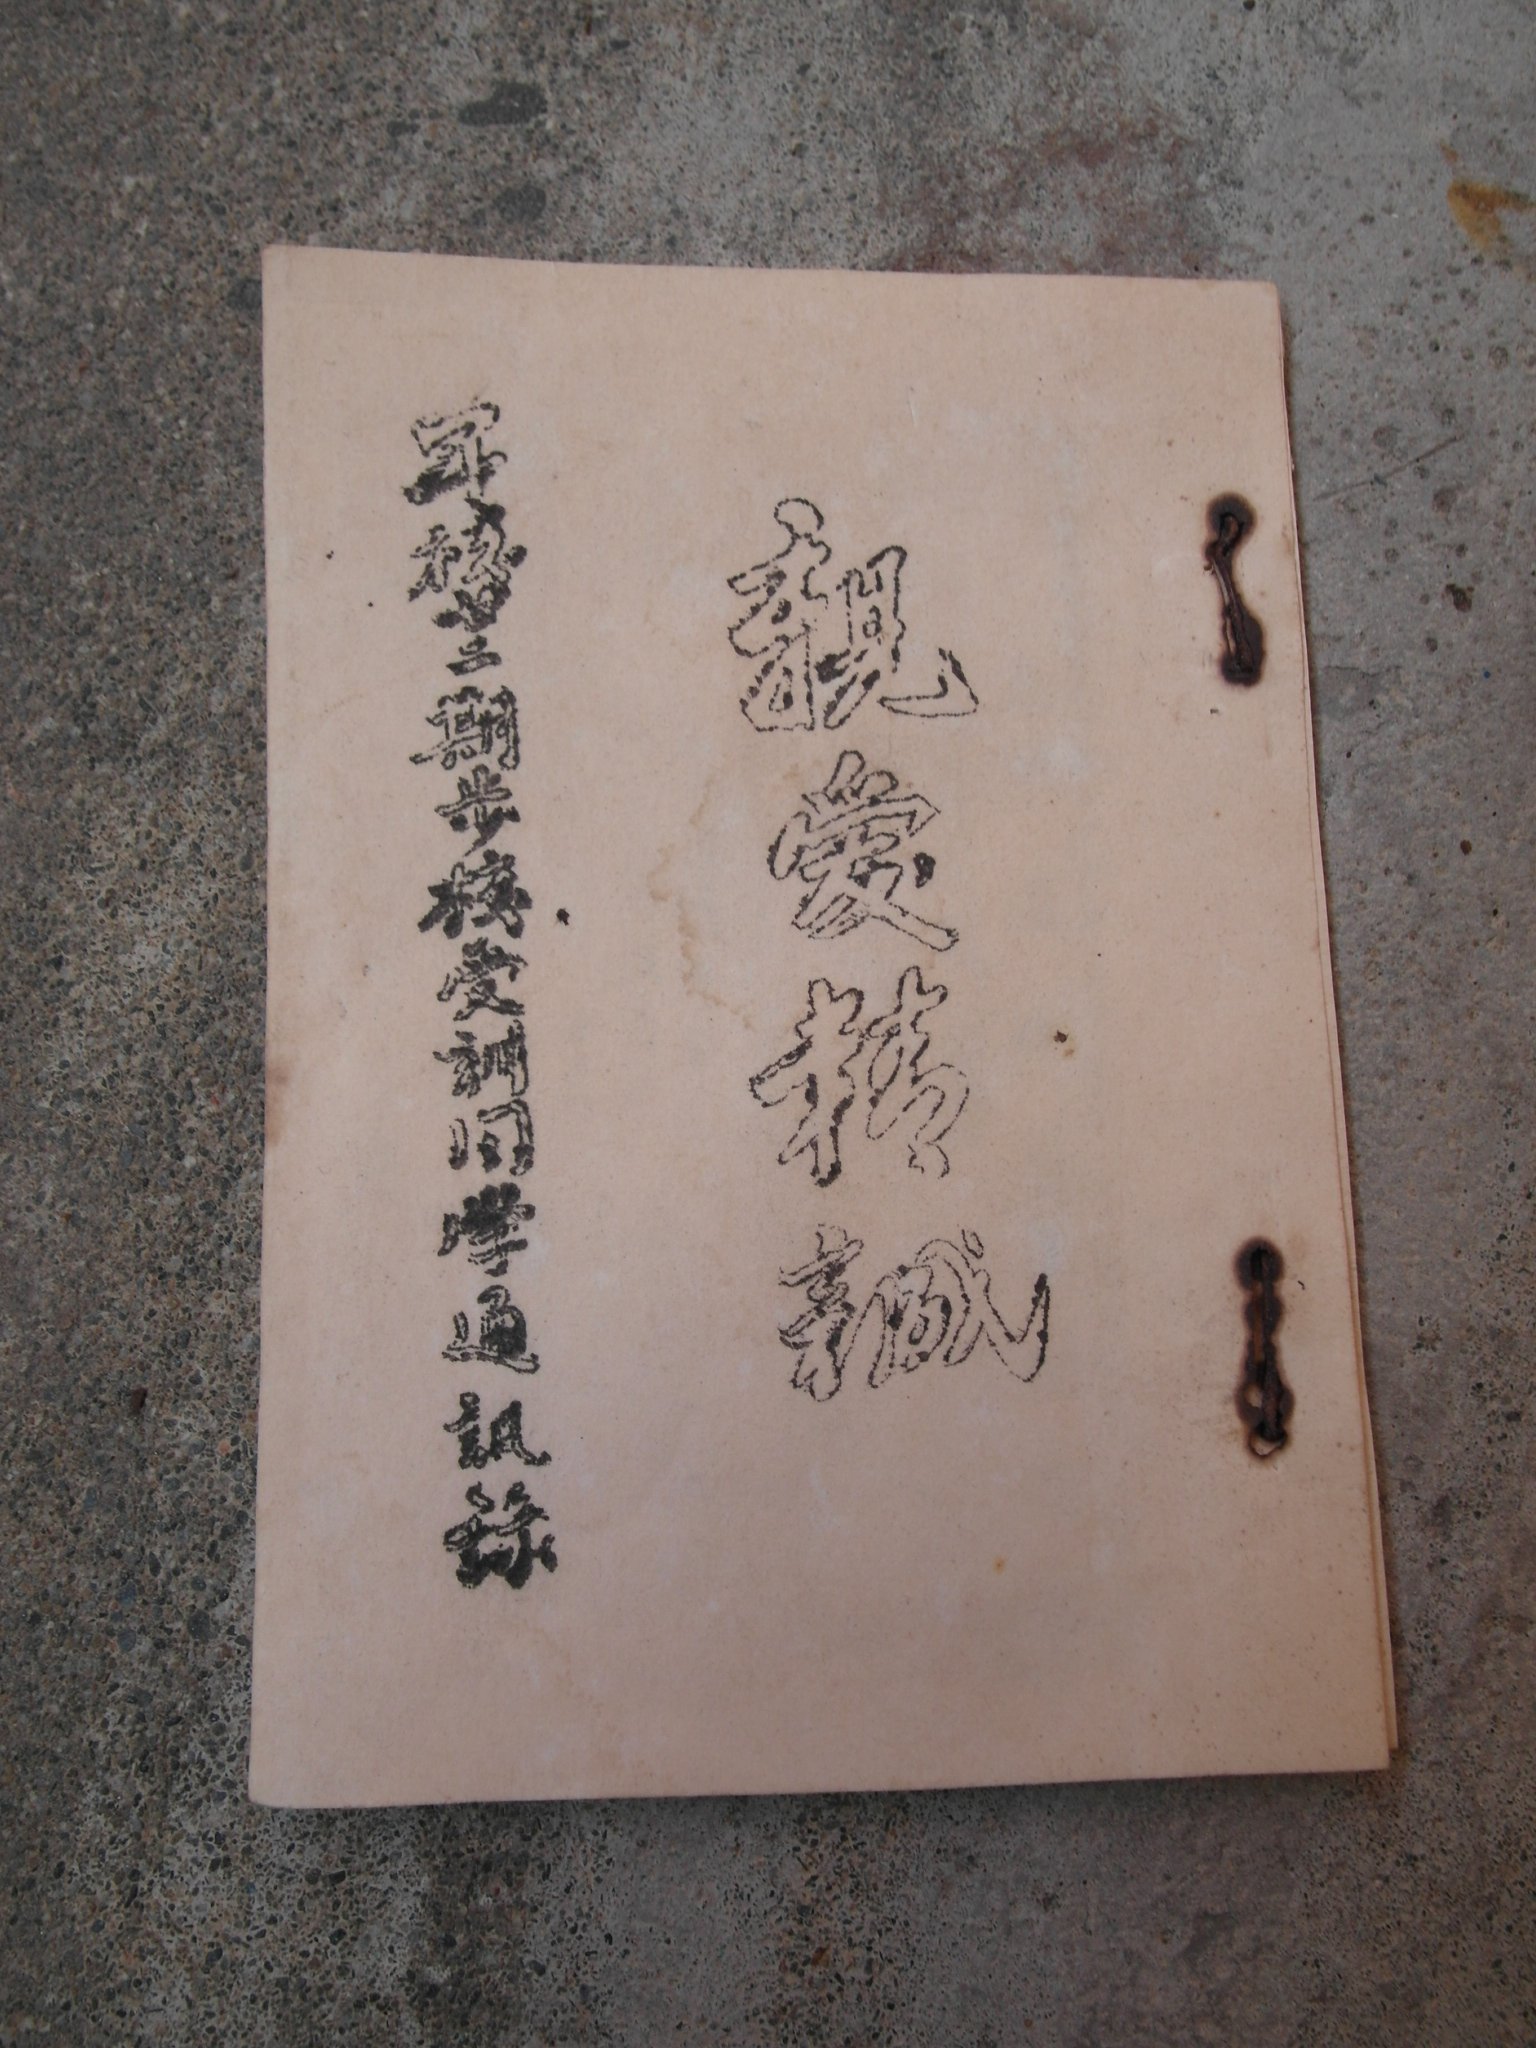 親愛精誠
軍校廿二期步校受訓同學通訊錄